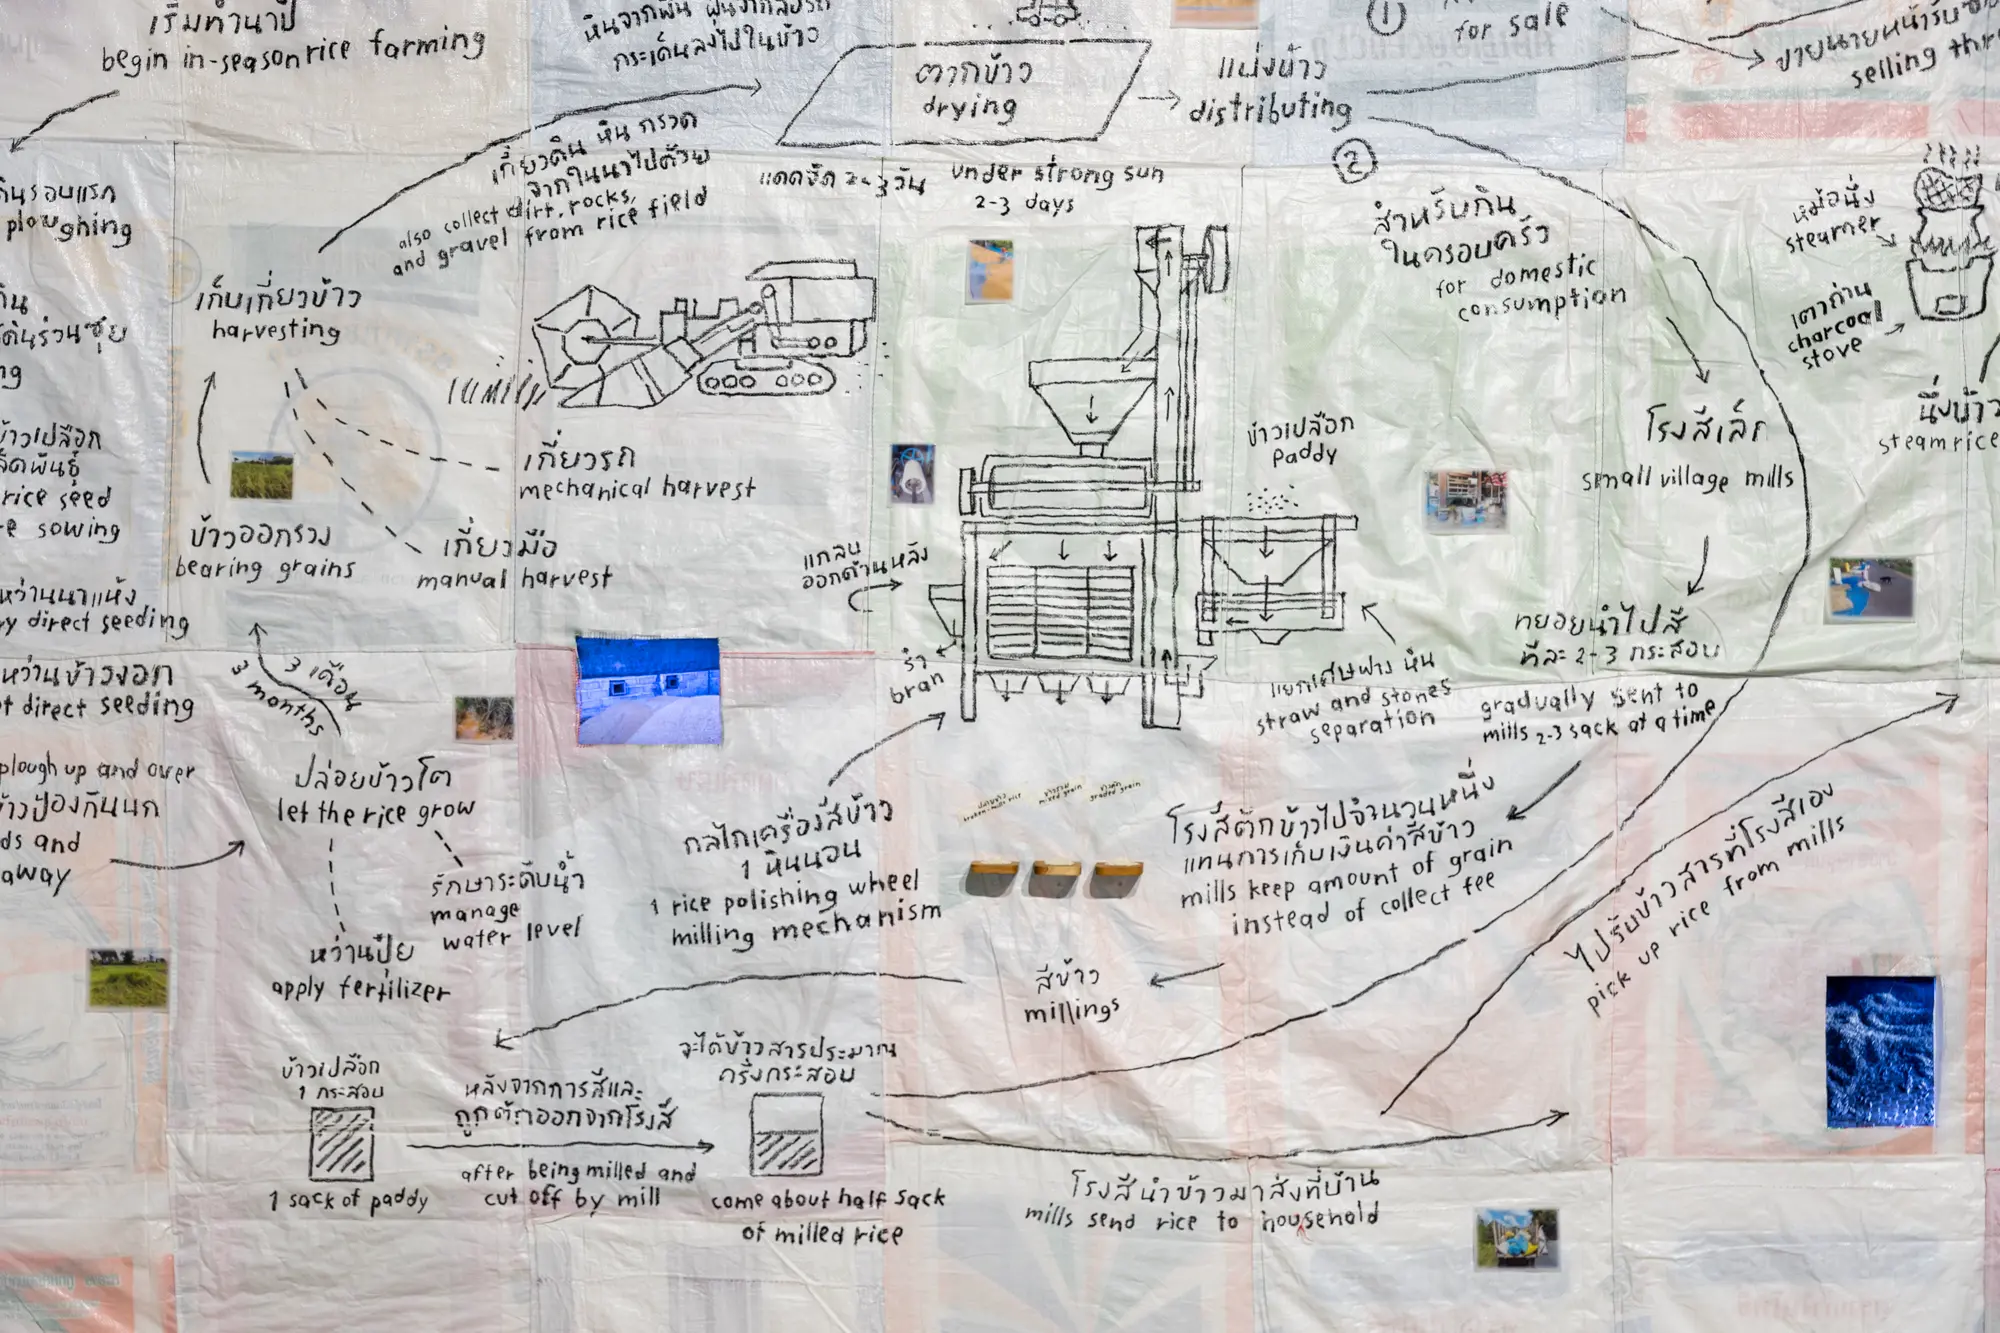 เริ่มทำนาปี
begin in-season rice farming
กระเด็นลงไปในข้าว
ตากข้าว
drying
แบ่งข้าว
distributing
1
for sale
ขายนายหน้ารับซื้อ
selling
2
แดดจัด 2-3 วัน
under strong sun
2-3 days
เกี่ยวดิน หิน กรวด
จากในนาไปด้วย
also collect dirt, rocks,
and gravel from rice field
ploughing
เก็บเกี่ยวข้าว
harvesting
สำหรับกิน
ในครอบครัว
for domestic
consumption
หม้อนึ่ง
steamer
เตาถ่าน
charcoal
stove
นึ่งข้าว
steam rice
โรงสีเล็ก
small village mills
ข้าวเปลือก
paddy
เกี่ยวรถ
mechanical harvest
เกี่ยวมือ
manual harvest
ข้าวออกรวง
bearing grains
ข้าวเปลือก
rice seed
sowing
หว่านนาแห้ง
direct seeding
หว่านข้าวงอก
direct seeding
3 เดือน
3 months
แกลบ
ออกด้านหลัง
รำ
bran
แยกเศษฟาง หิน
straw and stones
separation
ทยอยนำไปสี
ทีละ 2-3 กระสอบ
gradually sent to
mills 2-3 sack at a time
plough up and over
and
away
ปล่อยข้าวโต
let the rice grow
รักษาระดับน้ำ
manage
water level
หว่านปุ๋ย
apply fertilizer
กลไกเครื่องสีข้าว
1 หินนอน
1 rice polishing wheel
milling mechanism
โรงสีตักข้าวไปจำนวนหนึ่ง
แทนการเก็บเงินค่าสีข้าว
mills keep amount of grain
instead of collect fee
ไปรับข้าวสารที่โรงสีเอง
pick up rice from mills
สีข้าว
millings
ข้าวเปลือก
1 กระสอบ
1 sack of paddy
หลังจากการสีและ
ถูกตักออกจากโรงสี
after being milled and
cut off by mill
จะได้ข้าวสารประมาณ
ครึ่งกระสอบ
come about half sack
of milled rice
โรงสีนำข้าวมาส่งที่บ้าน
mills send rice to household